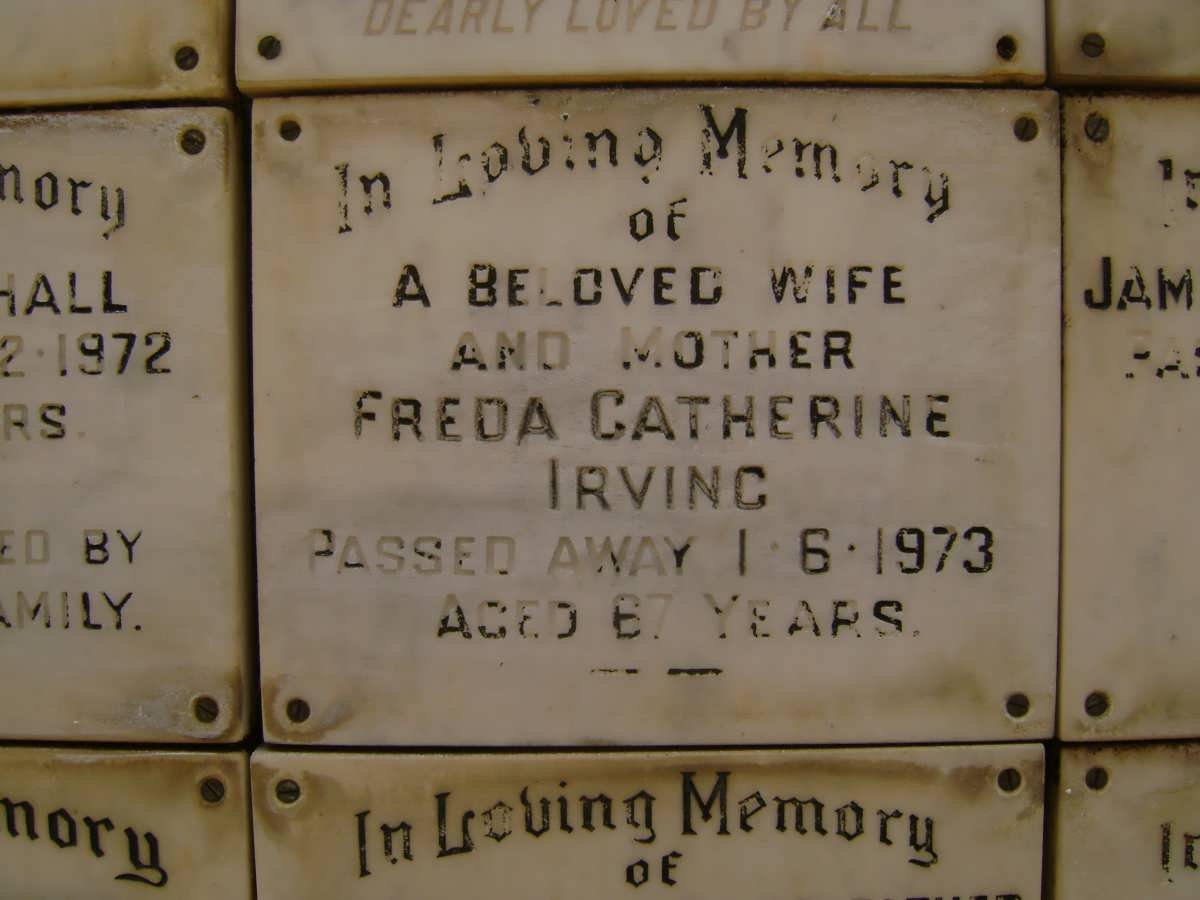 DEARLY LOVED BY ALL
In Loving Memory
of
A BELOVED WIFE
AND MOTHER
FREDA CATHERINE
IRVING
PASSED AWAY 1·6·1973
AGED 67 YEARS.
mory
HALL
2·1972
RS.
ED BY
AMILY.
In
JAM
PAS
mory
In Loving Memory
of
In